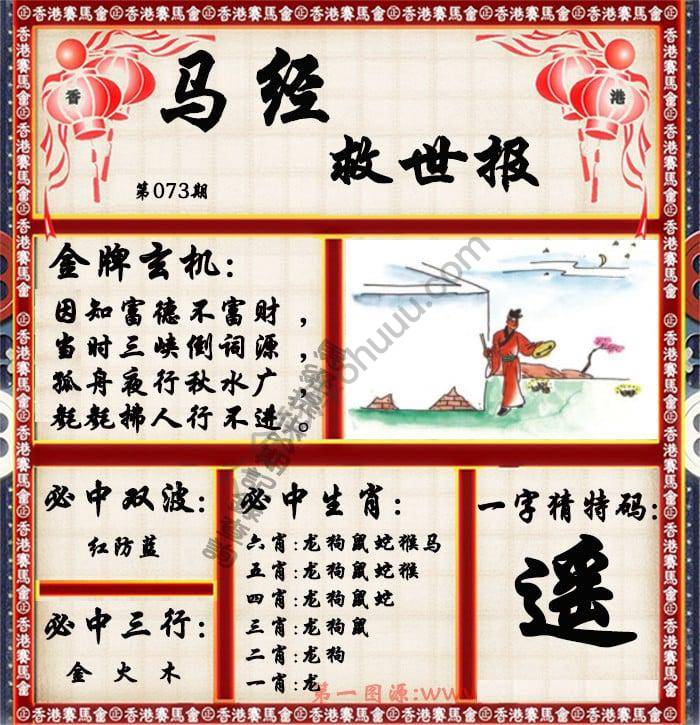 香港賽馬會
香
港
马经
救世报
第073期
金牌玄机:
因知富德不富财，
当时三峡倒词源，
孤舟夜行秋水广，
毵毵拂人行不进。
必中双波:
红防蓝
必中三行:
金火木
必中生肖:
六肖:龙狗鼠蛇猴马
五肖:龙狗鼠蛇猴
四肖:龙狗鼠蛇
三肖:龙狗鼠
二肖:龙狗
一肖:龙
一字猜特码:
遥
第一图源:www